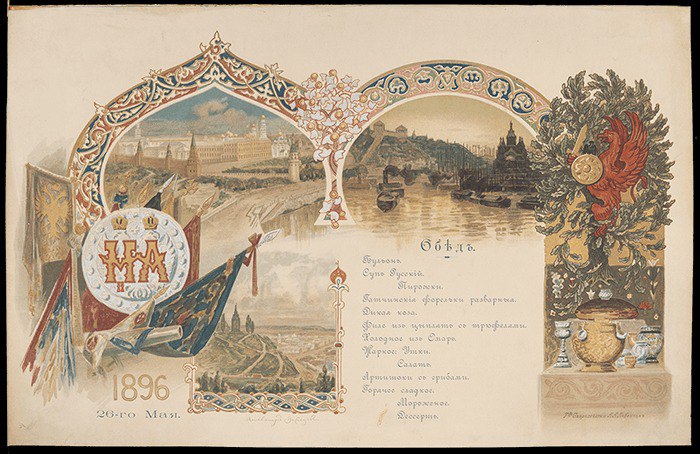 НА
1896
26-го Мая.
Обѣдъ.
Бульонъ.
Супъ Русскій.
Пирожки.
Гатчинскія форельки разварныя.
Дикая коза.
Филе изъ цыплятъ съ трюфелями.
Холодное изъ Омаръ.
Жаркое: Утки.
Салатъ.
Артишоки съ грибами.
Горячее сладкое.
Мороженое.
Дессертъ.